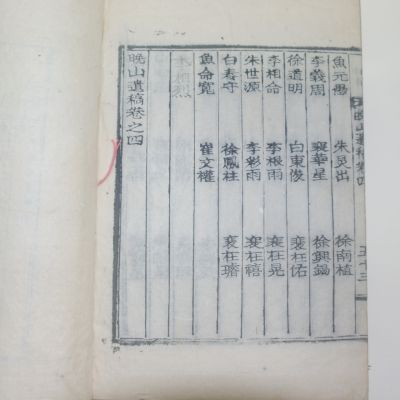 晩山遺稿卷四
五十三
魚元愚 朱炅出 徐南植
李義周 裵華星 徐興錫
徐道明 白東俊 裵枉佑
李相命 李根雨 裵枉晃
朱世源 李彩雨 裵枉禧
白春守 徐鳳柱 裵枉璿
魚命寬 崔文權
晩山遺稿卷之四